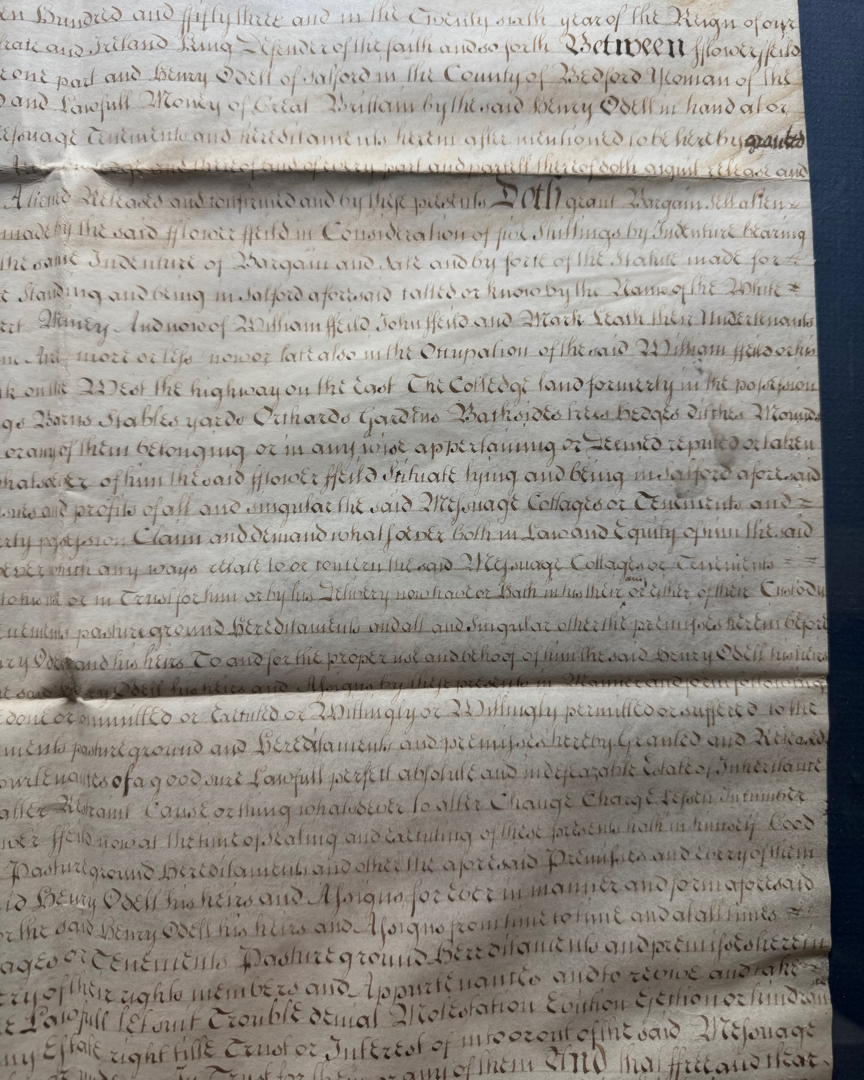 Hundred and fifty three and in the Twenty sixth year of the Reign of our
and Ireland King Defender of the faith and so forth Between fflower ffeild
one part and Henry Odell of Salford in the County of Bedford Yeoman of the
and Lawfull Money of Great Brittain by the said Henry Odell in hand at or
Messuage Tenements and hereditaments herein after mentioned to be hereby granted
and thereof and of every part and parcell thereof doth acquit release and
Aliened Released and confirmed and by these presents Doth grant Bargain sell alien
made by the said fflower ffeild in Consideration of five Shillings by Indenture bearing
the same Indenture of Bargain and Sale and by force of the Statute made for
Standing and being in Salford aforesaid called or know by the Name of the White
And now of William ffeild John ffeild and Mark Leach their Undertenants
more or less now or late also in the Occupation of the said William ffeild or his
on the West the highway on the East The Colledge land formerly in the possession
Barns Stables yards Orchards Gardens Backsides trees hedges ditches Mounds
or any of them belonging or in any wise appertaining or Deemed reputed or taken
whatsoever of him the said fflower ffeild Situate lying and being in Salford aforesaid
and profits of all and singular the said Messuage Cottages or Tenements and
possession Claim and demand whatsoever both in Law and Equity of him the said
which any ways relate to or concern the said Messuage Cottages or Tenements
or in Trust for him or by his Delivery now have or hath in his their or either of their Custody
pasture ground Hereditaments and all and Singular other the premisses herein before
Odell and his heirs To and for the proper use and behoof of him the said Henry Odell his heirs
said Henry Odell his heirs and Assigns by these presents in Manner and form following
done or committed or Executed or Willingly or Willingly permitted or suffered to the
pasture ground and Hereditaments and premisses hereby Granted and Released
of a good sure Lawfull perfect absolute and indefeazable Estate of Inheritance
Restraint Cause or thing whatsoever to alter Change Charge Lessen Incumber
ffeild now at the time of Sealing and Executing of these presents hath in himself Good
Pasture ground Hereditaments and other the aforesaid Premisses and every of them
said Henry Odell his heirs and Assigns for Ever in manner and form aforesaid
the said Henry Odell his heirs and Assigns from time to time and at all times
or Tenements Pasture ground Hereditaments and premisses herein
of their rights members and Appurtenances and to receive and take
Lawfull let suit Trouble denial Molestation Eviction Ejection or hindrance
Estate right title Trust or Interest of in to or out of the said Messuage
In Trust for them or any of them And that free and clear